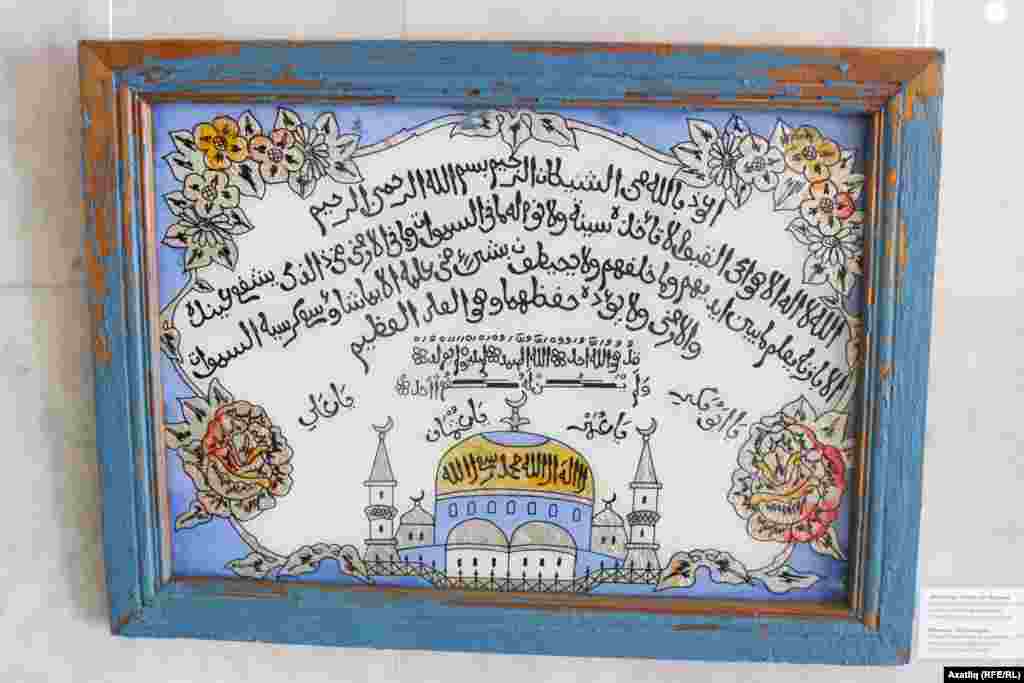 اعوذ بالله من الشيطان الرجيم بسم الله الرحمن الرحيم
الله لا اله الا هو الحي القيوم لا تأخذه سنة ولا نوم له ما في السموات وما في الارض من ذا الذي يشفع عنده
الا باذنه يعلم ما بين ايديهم وما خلفهم ولا يحيطون بشئ من علمه الا بما شاء وسع كرسيه السموات
والارض ولا يؤده حفظهما وهو العلي العظيم
قل هو الله احد الله الصمد لم يلد ولم يولد
ولم يكن له كفوا احد
يا ابو بكر
يا عمر
يا عثمان
يا علي
لا اله الا الله محمد رسول الله
Azatliq (RFE/RL)